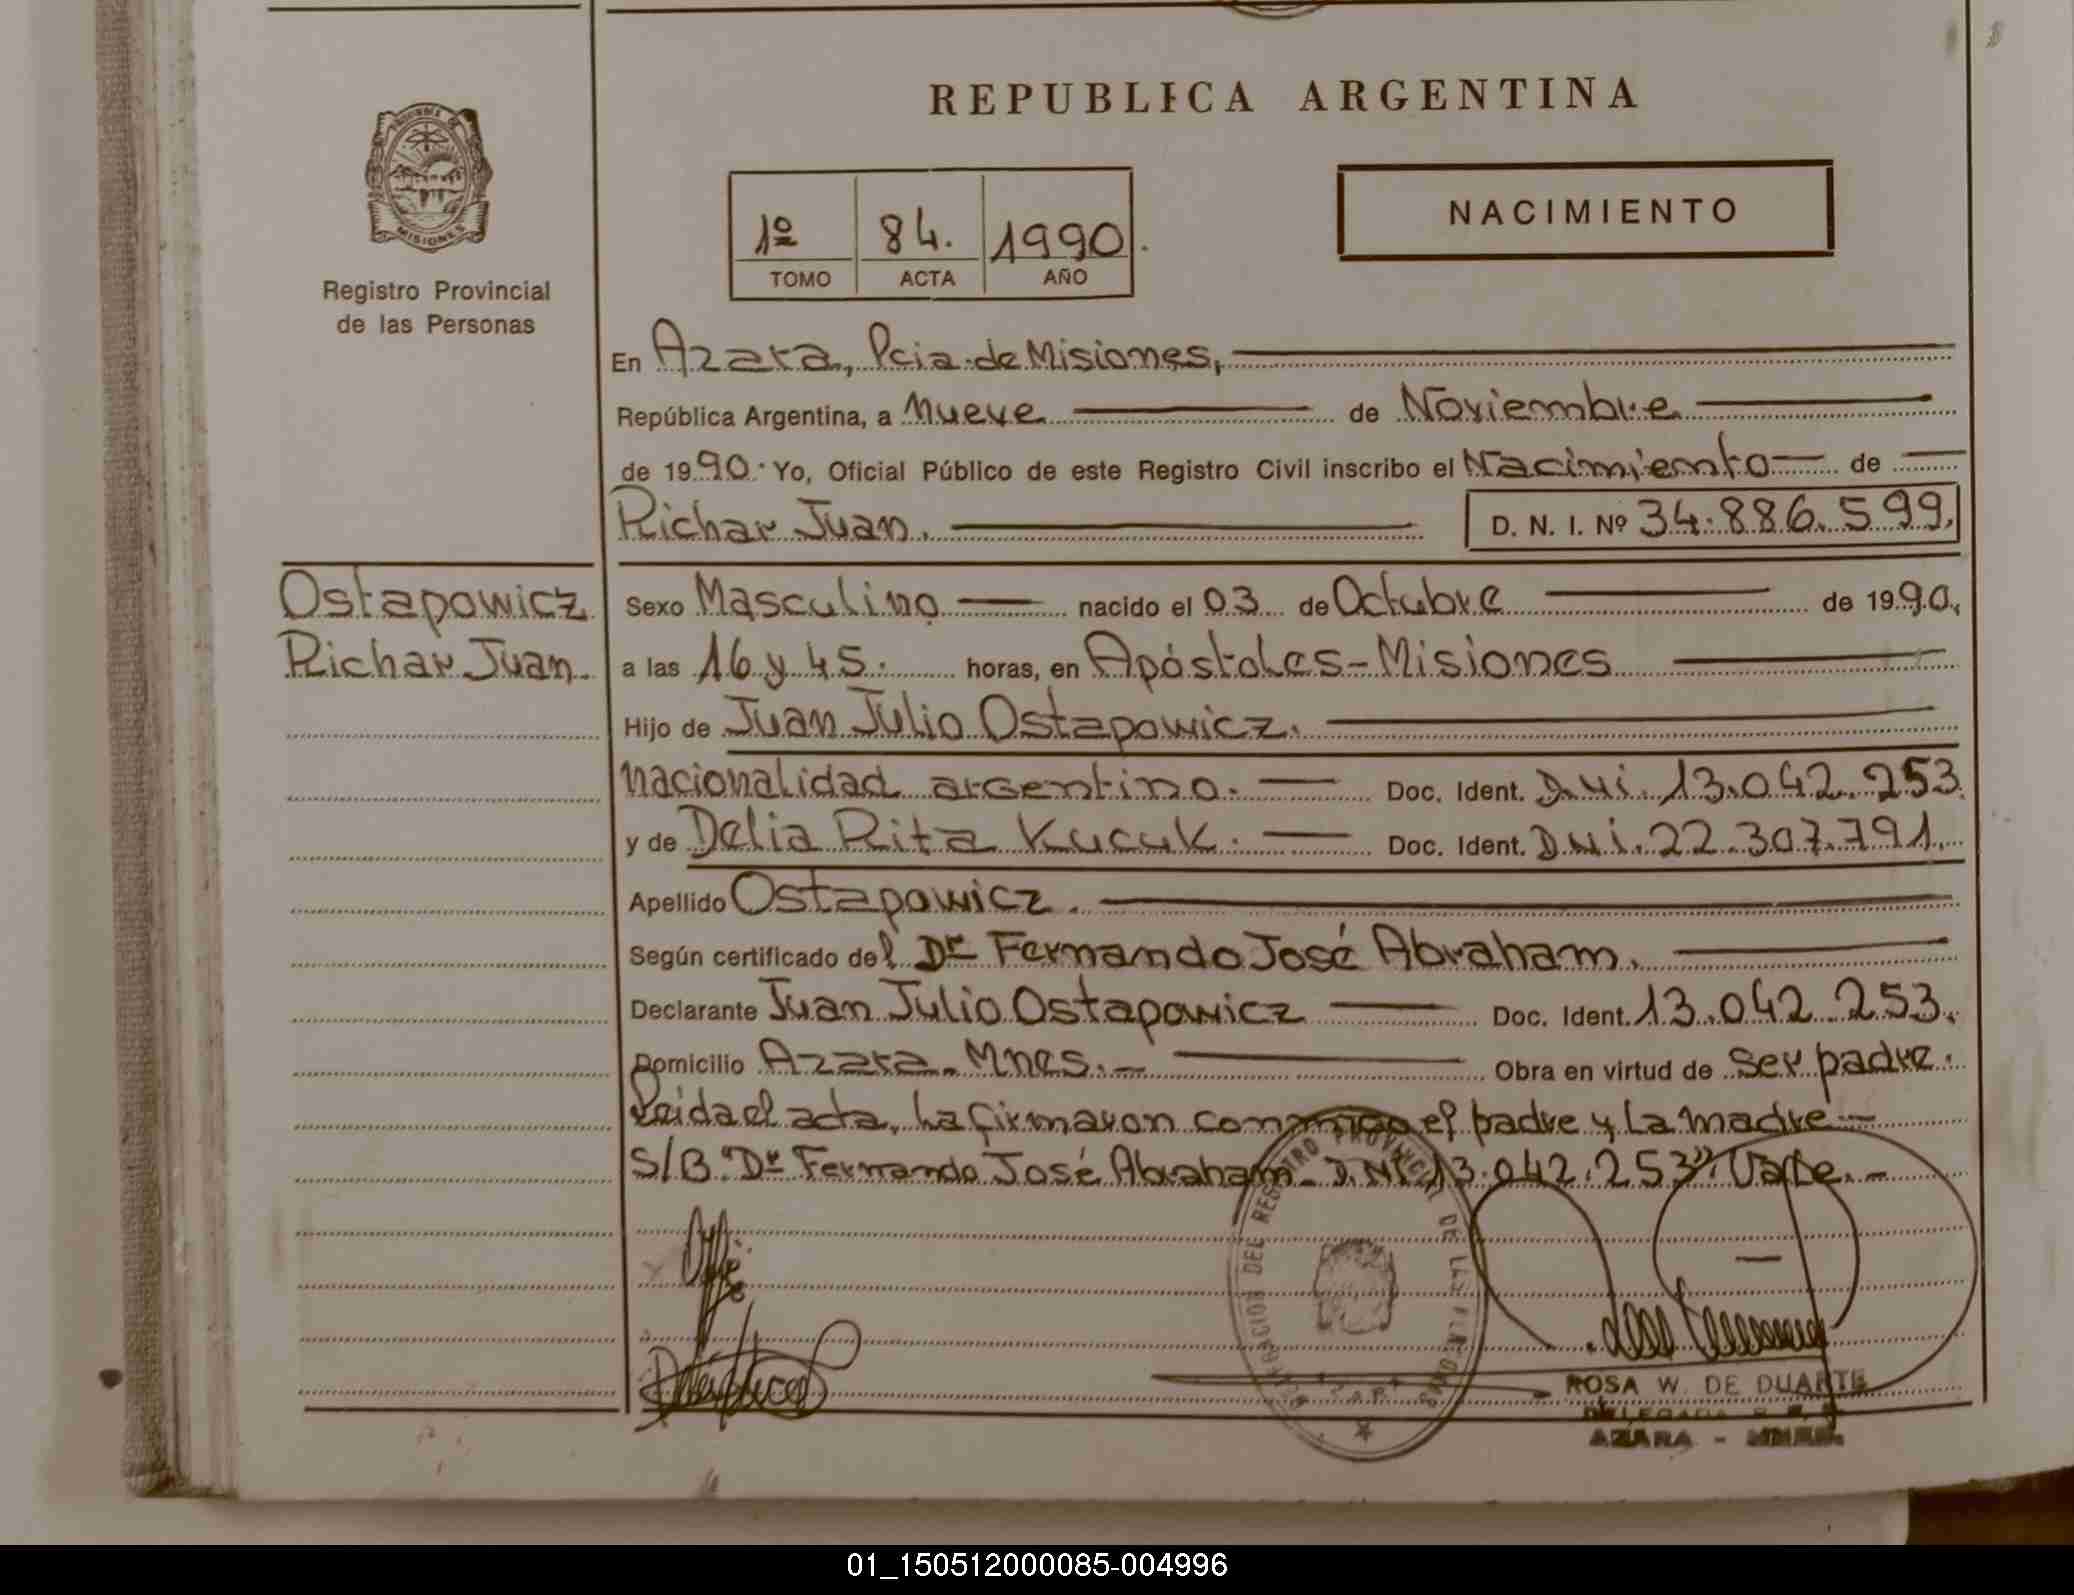 REPUBLICA ARGENTINA
MISIONES
Registro Provincial
de las Personas
1º 84. 1990.
TOMO ACTA AÑO
NACIMIENTO
En Azara, Pcia. de Misiones,
República Argentina, a nueve de Noviembre
de 1990. Yo, Oficial Público de este Registro Civil inscribo el Nacimiento de
Richar Juan. D. N. I. Nº 34.886.599.
Ostapowicz
Richar Juan.
Sexo Masculino nacido el 03 de Octubre de 1990.
a las 16 y 45. horas, en Apóstoles-Misiones
Hijo de Juan Julio Ostapowicz.
nacionalidad argentino. Doc. Ident. D.N.i. 13.042.253.
y de Delia Rita Kucuk. Doc. Ident. D.N.i. 22.307.791.
Apellido Ostapowicz.
Según certificado del Dr Fernando José Abraham.
Declarante Juan Julio Ostapowicz Doc. Ident. 13.042.253.
Domicilio Azara. Mnes. Obra en virtud de ser padre.
Leida el acta, la firmaron conmigo el padre y la madre
S/B. "Dr Fernando José Abraham. D.Ni 13.042.253". Vale.
DELEGACION DEL REGISTRO PROVINCIAL DE LAS PERSONAS
ROSA W. DE DUARTE
DELEGADA
AZARA - MNES.
01_150512000085-004996